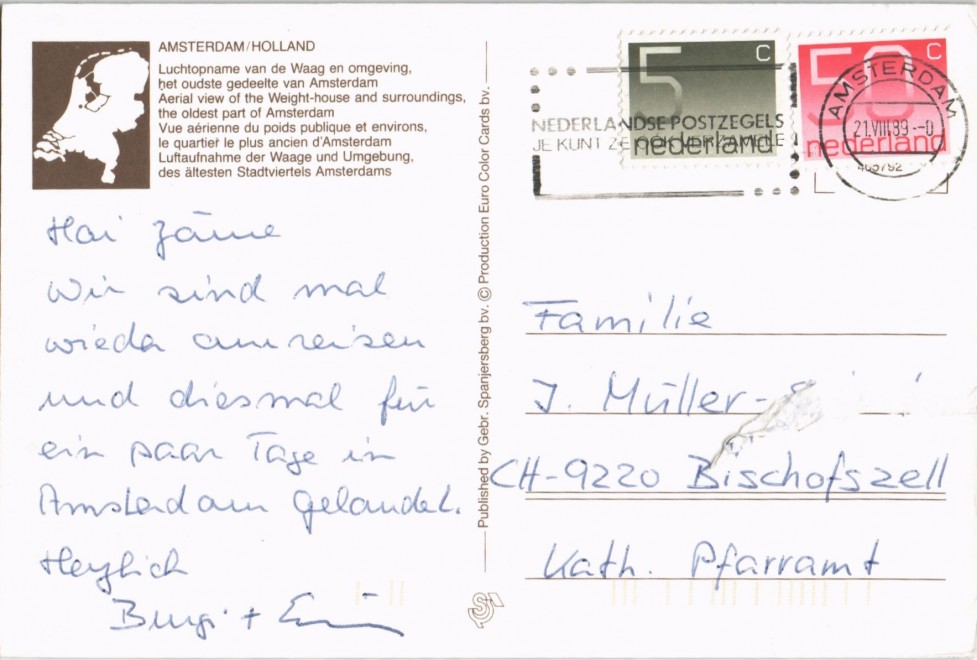 AMSTERDAM/HOLLAND
Luchtopname van de Waag en omgeving,
het oudste gedeelte van Amsterdam
Aerial view of the Weight-house and surroundings,
the oldest part of Amsterdam
Vue aérienne du poids publique et environs,
le quartier le plus ancien d'Amsterdam
Luftaufnahme der Waage und Umgebung,
des ältesten Stadtviertels Amsterdams
Hai zäme
wir sind mal
wieder am reisen
und diesmal für
ein paar Tage in
Amsterdam gelandet.
Herzlich
Burgi +
Published by Gebr. Spanjersberg bv. © Production Euro Color Cards bv.
NEDERLANDSE POSTZEGELS
JE KUNT ZE
5 C
nederland
50 C
nederland
AMSTERDAM
21.VIII.89.-0
Familie
J. Müller-
CH-9220 Bischofszell
Kath. Pfarramt